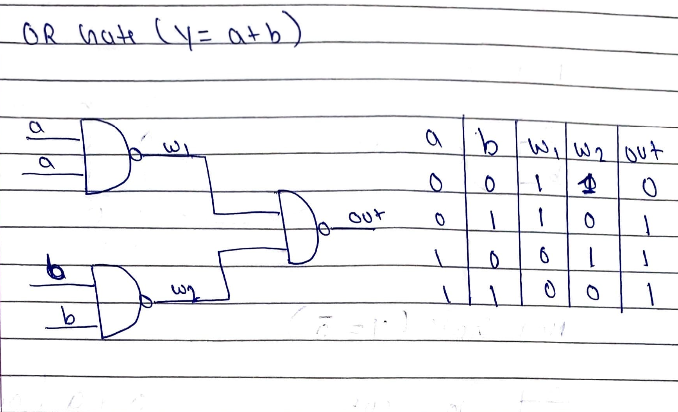 OR Gate (y = a+b)
a
a
w1
b
b
w2
out
a b w1 w2 out
0 0 1 1 0
0 1 1 0 1
1 0 0 1 1
1 1 0 0 1